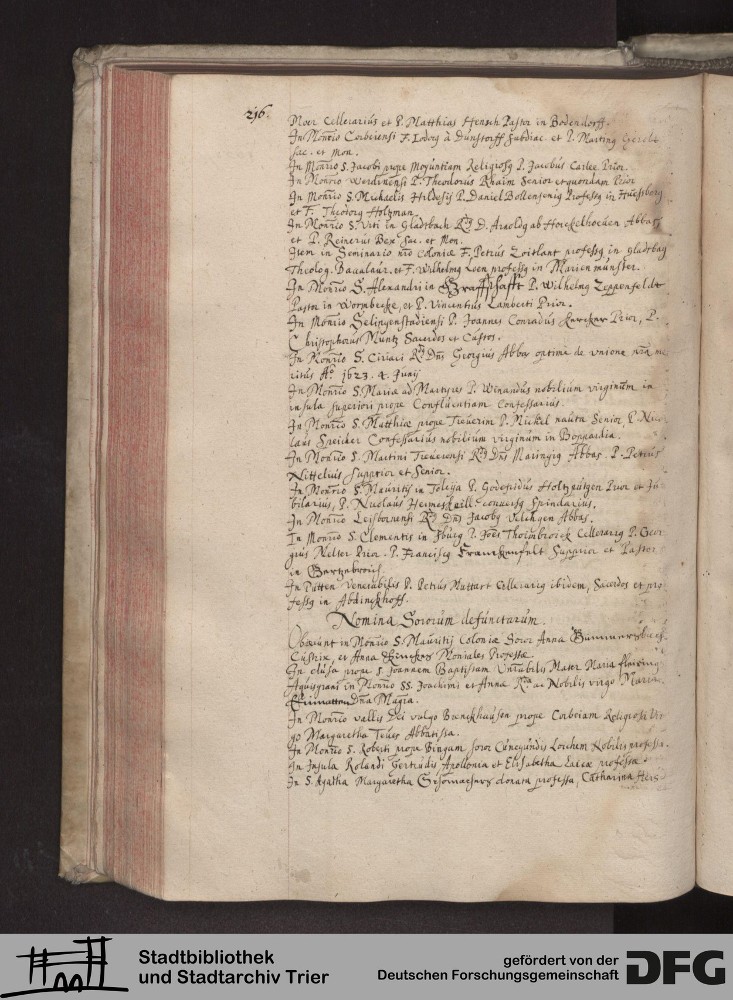 216.
Moer Cellerarius et P. Matthias Hensch Pastor in Bodendorff.
In Mon̄rio Corbeiensi F. Jodocg à Dunstorff Subdiac. et P. Marting
Sac. et Mon.
In Mon̄rio S. Jacobi prope Moguntiam Religiosg P. Jacobus Carlee Prior.
In Mon̄rio Werdinensi P. Theodorus Rhaim Senior et quondam Prior
In Mon̄rio S. Michaelis Hildesij P. Daniel Bollensenig Professg in Huesberg
et F. Theodorg Holtzman.
In Mon̄rio S. Viti in Gladbach Rdg D. Arnoldg ab Hoeckelhoeuen Abbas
et P. Reinerus Bex Sac. et Mon.
Item in Seminario nr̄o Coloniæ F. Petrus Zoitlant professg in gladbag
Theolog. Baccalaur. et F. Wilhelmg Leen professg in Marienmünster.
In Mon̄rio S. Alexandri in Graffschafft P. Wilhelmg Zeppenfeldt
Pastor in Wormbecke, et P. Vincentius Lamberti Prior.
In Mon̄rio Selingenstadiensi P. Joannes Conradus Kercker Prior, P.
Christophorus Müntz Sacerdos et Custos.
In Mon̄rio S. Ciriaci Rdg Dn̄s Georgius Abbas optime de vnione nr̄a me
ritus Ao. 1623. 4. Junij
In Mon̄rio S. Mariæ ad Martyres P. Winandus nobilium virginum in
insula superiori prope Confluentiam Confessarius.
In Mon̄rio S. Matthiæ prope Treuerim P. Michael nauta Senior, P. Nico
laus Speicher Confessarius nobilium virginum in Boppardia.
In Mon̄rio S. Martini Treuerensi Rdg Dn̄s Maringig Abbas. P. Petrus
Nittelius Supprior et Senior.
In Mon̄rio S. Mauritij in Toleya P. Godefridus Holtzpütgen Prior et Ju
bilarius, P. Nicolaus Hermeskeill conuersg Spindarius.
In Mon̄rio Leisborensi Rdg Dn̄s Jacobg Velingen Abbas.
In Mon̄rio S. Clementis in Iburg P. Joēs Thorinbroick Cellerarig P. Geor
gius Nelter Prior. P. Francisg Franckenfelt Supprior et Pastor
in
In Putten Venerabilis P. Petrus Muttart Cellerarig ibidem, Sacerdos et pro
fessg in Abdinckhoff.
Nomina Sororum defunctarum.
Obierunt in Mon̄rio S. Mauritij Coloniæ Soror Anna
Custrix, et Anna Moniales Professæ.
In clusa prope S. Joannem Baptistam Vn̄rabilis Mater Maria
Aquisgrani in Mon̄rio SS. Joachimi et Annæ Rda ac Nobilis virgo Maria
Dn̄a Magr̄a.
In Mon̄rio vallis Dei vulgo Brenckhausen prope Corbeiam Religiosa Vir
go Margaretha Teues Abbatissa.
In Mon̄rio S. Roberti prope Bingam soror Cunegundis Lorchem Nobilis professa.
In Insula Rolandi Gertrudis Apollonia et Elisabetha professæ
In S. Agatha Margaretha donata professa, Catharina
Stadtbibliothek
und Stadtarchiv Trier
gefördert von der
Deutschen Forschungsgemeinschaft
DFG